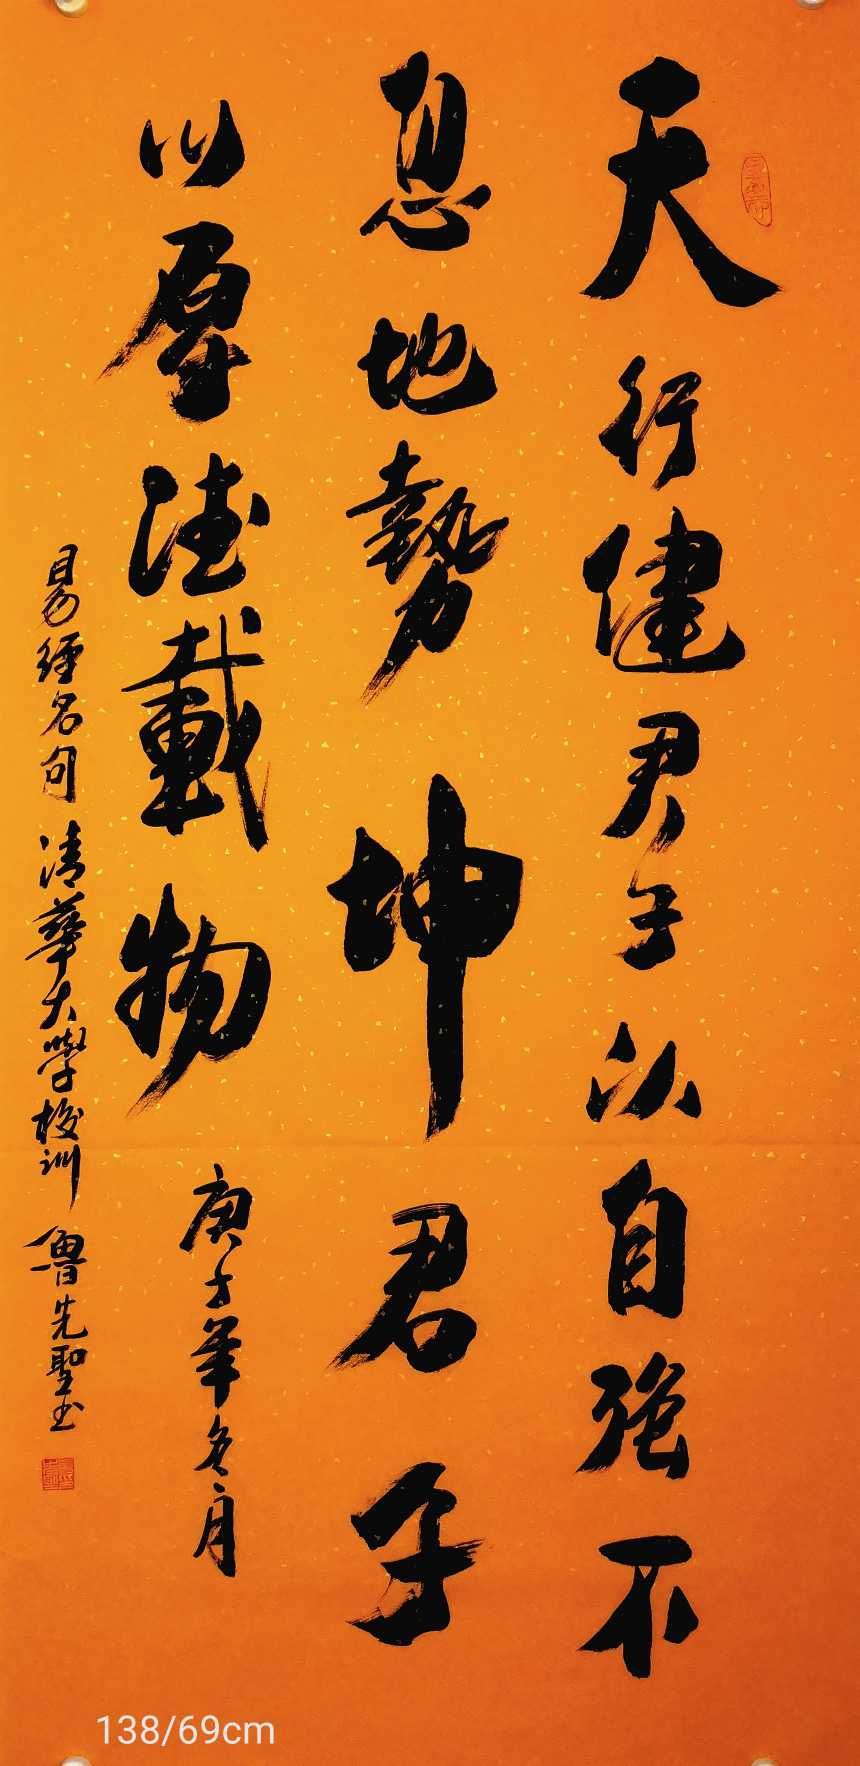 天行健君子以自強不
息地勢坤君子
以厚德載物
庚子年冬月
易經名句清華大學校訓魯先聖书
138/69cm